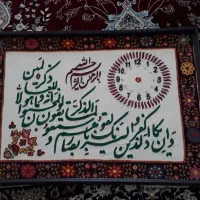 بسم الله الرحمن الرحیم
وان یکاد الذین کفروا لیزلقونک بابصارهم لما سمعوا
الذکر و یقولون انه لمجنون
و ما هو الا
ذکر للعالمین